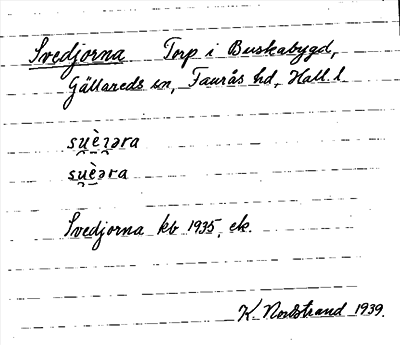 Svedjorna Torp i Buskabygd,
Gällareds sn, Faurås hd, Hall. l.
su̯èɿəra
su̯èəra
Svedjorna kb 1935, ek.
K. Nordstrand 1939.